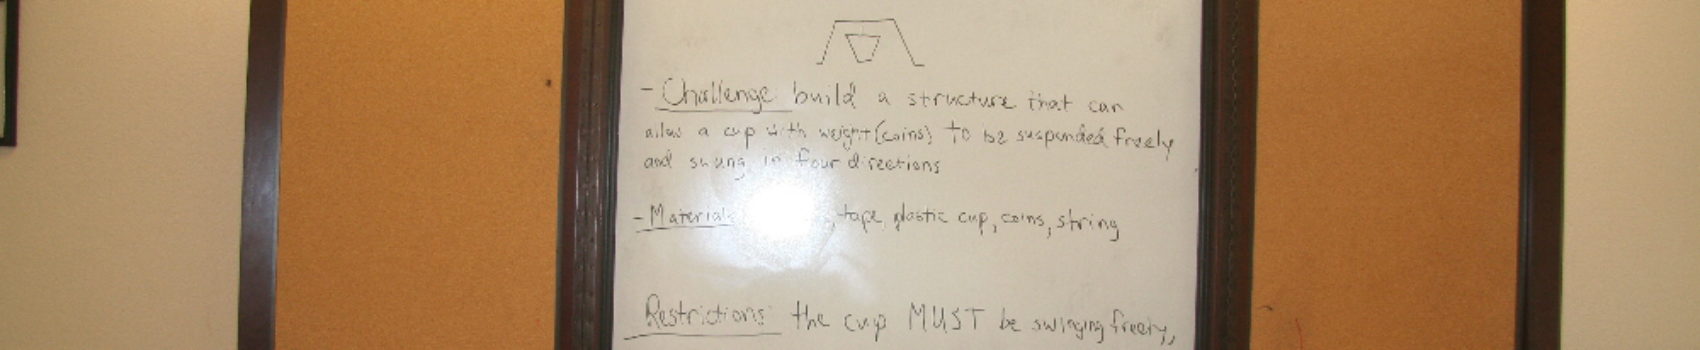 - Challenge build a structure that can
allow a cup with weight (coins) to be suspended freely
and swung in four directions
- Materials , tape, plastic cup, coins, string
Restrictions: the cup MUST be swinging freely,